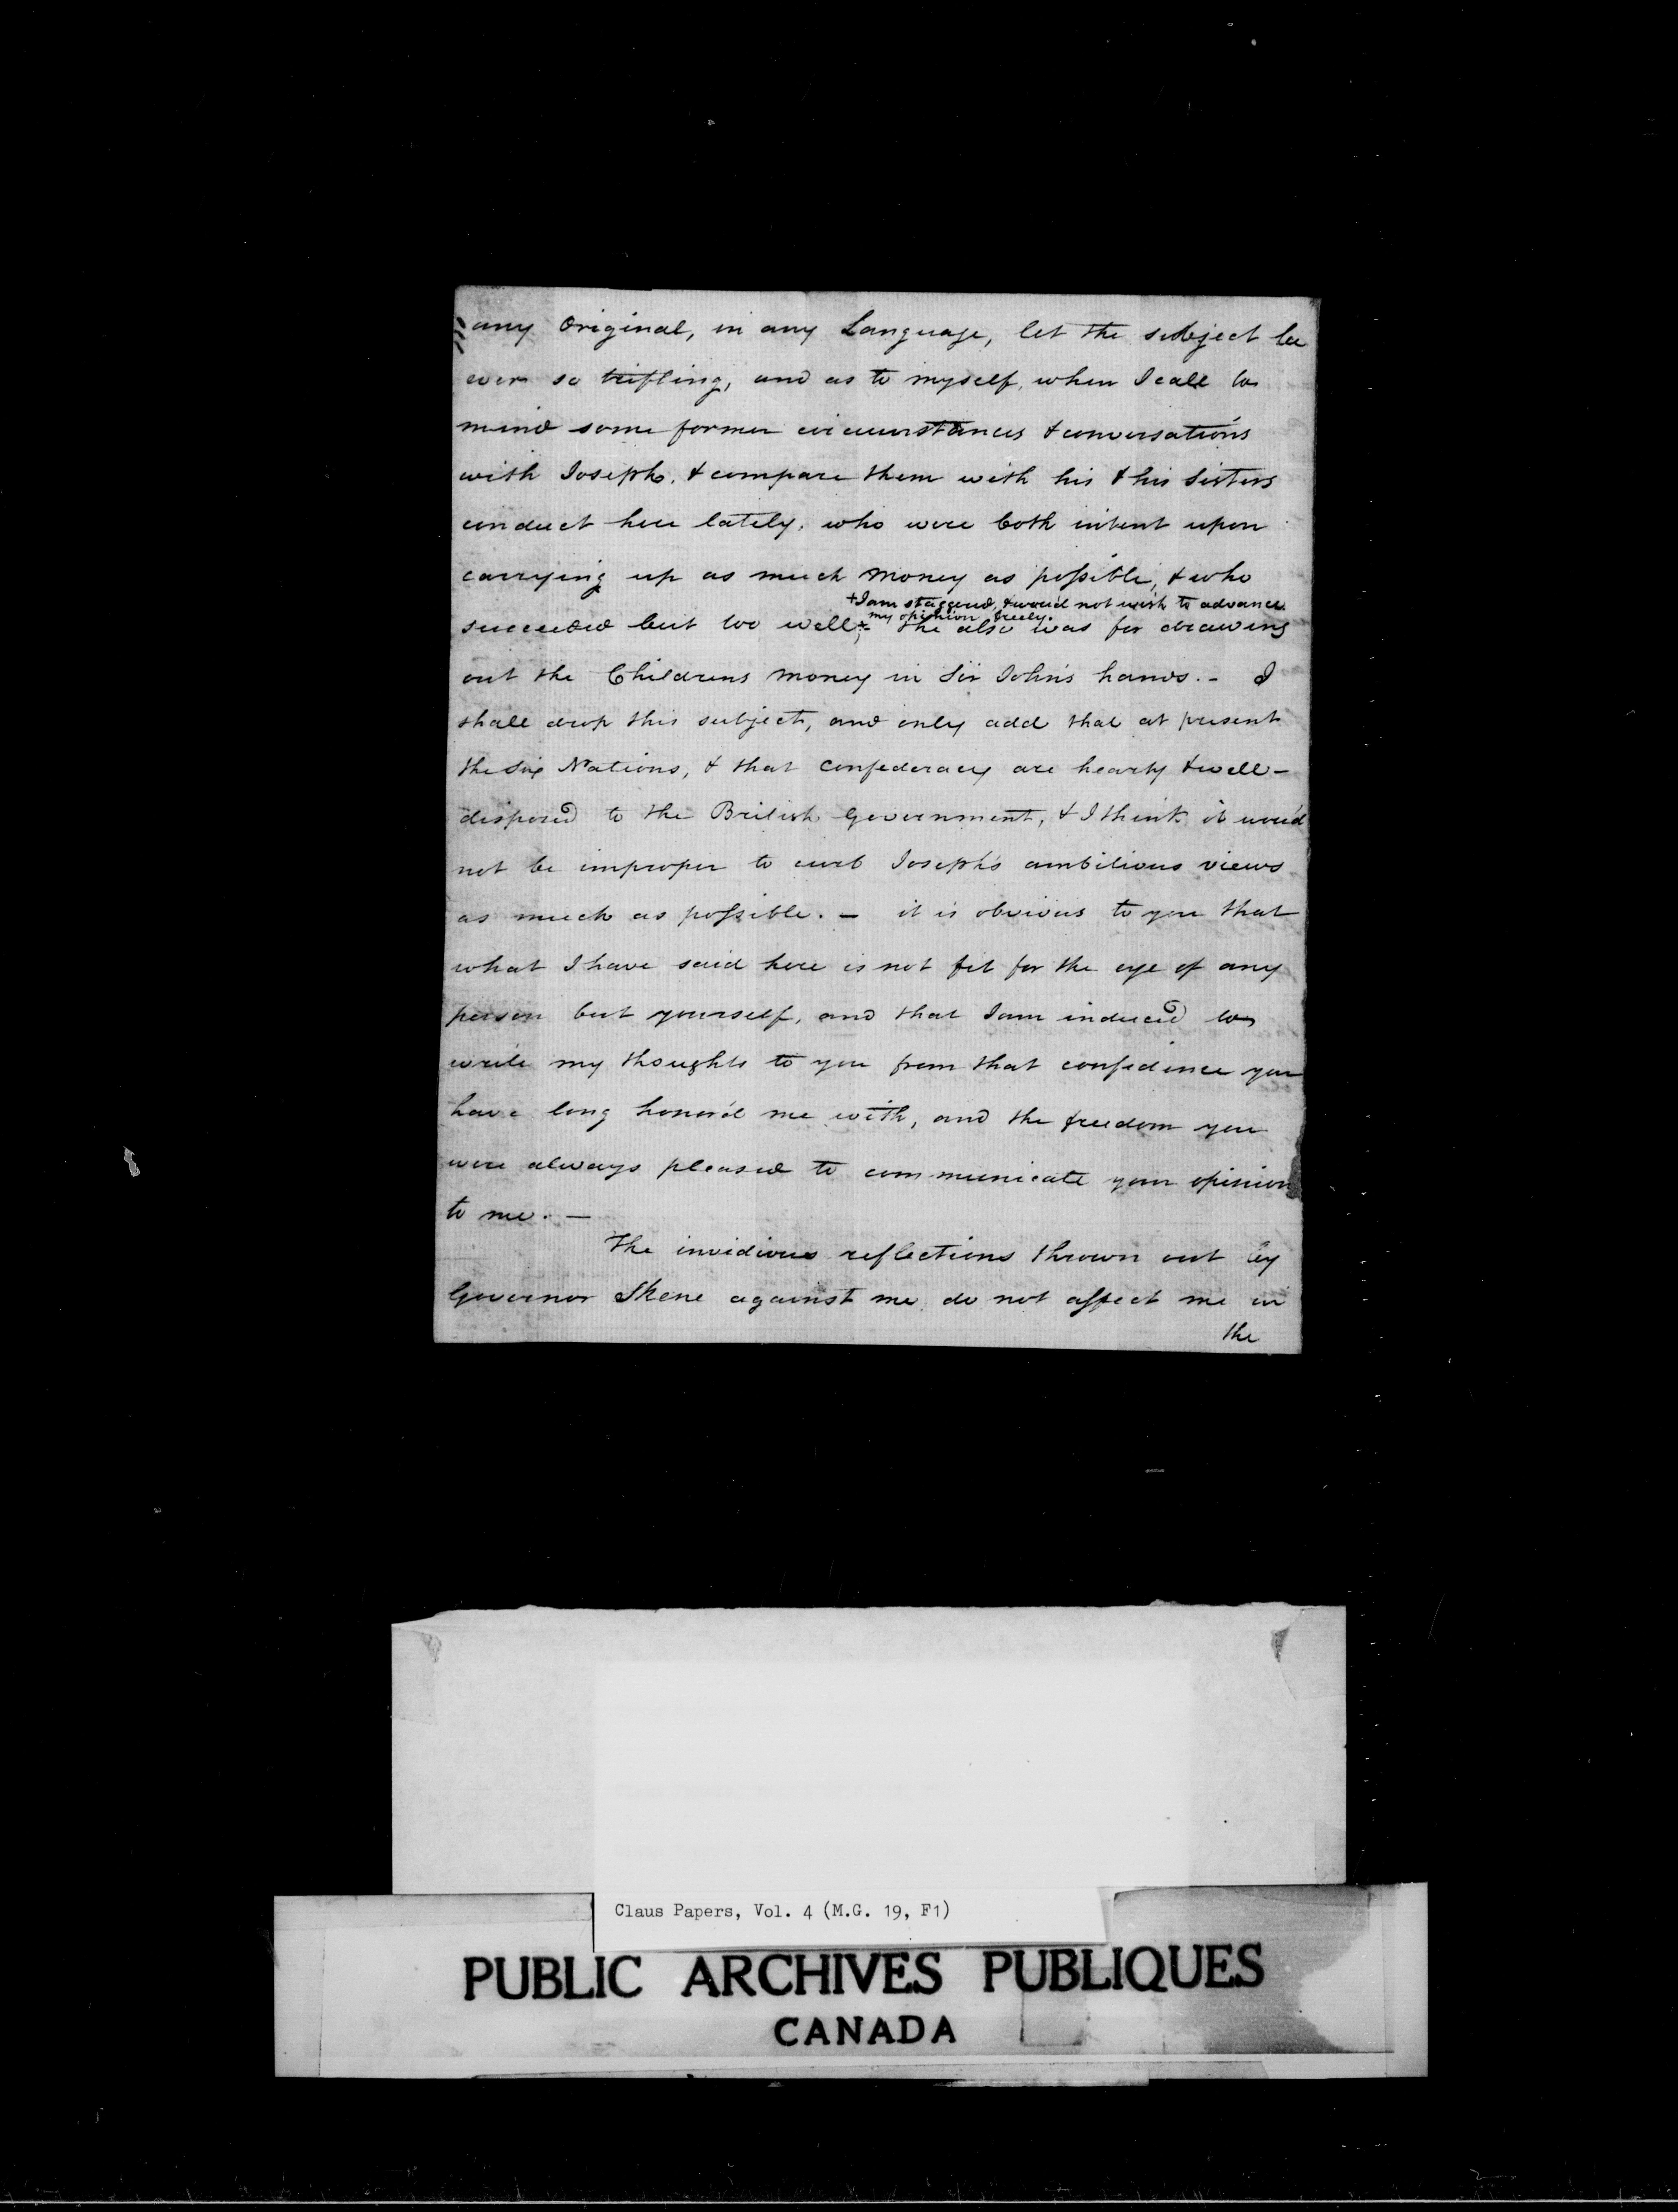 any Original, in any Language, let the subject be
ever so trifling, and as to myself, when I call to
mind some former circumstances & conversations
with Joseph, & compare them with his & his Sisters
conduct here lately, who were both intent upon
carrying up as much money as possible, & who
+I am staggered, & wou'd not wish to advance
my opinion freely.
succeeded but too well+ – She also was for drawing
out the Childrens money in Sir John's hands. – I
shall drop this subject, and only add that at present
the Six Nations, & that Confederacy are hearty & well-
disposed to the British Government, & I think it wou'd
not be improper to curb Joseph's ambitious views
as much as possible. – it is obvious to you that
what I have said here is not fit for the eye of any
person but yourself, and that I am induced to
write my thoughts to you from that confidence you
have long honor'd me with, and the freedom you
were always pleased to communicate your opinion
to me. –
The invidious reflections thrown out by
Governor Skene against me, do not affect me in
the
Claus Papers, Vol. 4 (M.G. 19, F1)
PUBLIC ARCHIVES PUBLIQUES
CANADA